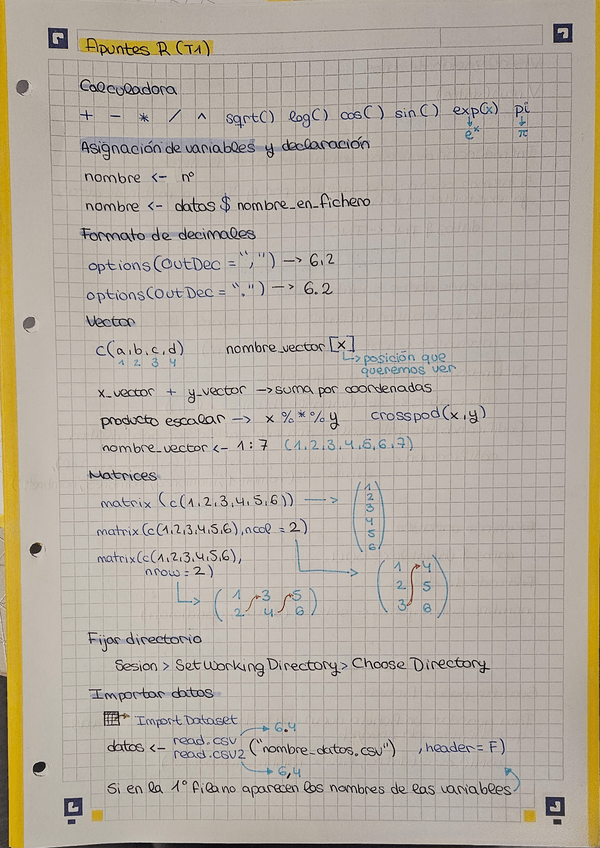 Apuntes R (T1)
Calculadora
+ - * / ^ sqrt() log() cos() sin() exp(x) pi
↓ e^x ↓ π
Asignación de variables y declaración
nombre <- nº
nombre <- datos $ nombre_en_fichero
Formato de decimales
options(OutDec = ",") -> 6,2
options(OutDec = ".") -> 6.2
Vector
c(a,b,c,d) nombre_vector [x]
1 2 3 4 ↳ posición que
queremos ver
x_vector + y_vector -> suma por coordenadas
producto escalar -> x %*% y crosspod(x,y)
nombre_vector <- 1:7 (1,2,3,4,5,6,7)
Matrices
matrix (c(1,2,3,4,5,6)) -> (1 2 3 4 5 6)
matrix(c(1,2,3,4,5,6),ncol = 2)
matrix(c(1,2,3,4,5,6),
nrow = 2)
1 4
2 5
3 6
1 3 5
2 4 6
Fijar directorio
Sesion > Set Working Directory > Choose Directory
Importar datos
Import Dataset
read.csv -> 6.4
datos <- ("nombre_datos.csv") , header = F)
read.csv2 -> 6,4
Si en la 1º fila no aparecen los nombres de las variables